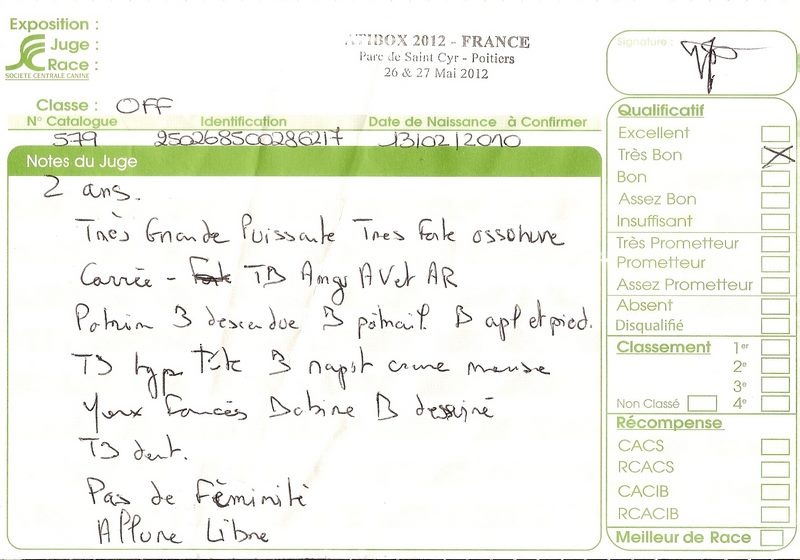 Exposition :
Juge :
Race :
SOCIETE CENTRALE CANINE
ATIBOX 2012 - FRANCE
Parc de Saint Cyr - Poitiers
26 & 27 Mai 2012
Signature :
Classe : OFF
N° Catalogue Identification Date de Naissance à Confirmer
579 250268500286217 13/02/2010
Notes du Juge
2 ans.
Très Grande Puissante Tres Forte ossature
Carrée - Forte TB Angu AV et AR
Poitrine B descendue B poitrail. B apl et pied.
TB type Tête B rapst crane museau
Yeux Foncés Babine B dessiné
TB dent.
Pas de Féminité
Allure Libre
Qualificatif
Excellent
Très Bon
Bon
Assez Bon
Insuffisant
Très Prometteur
Prometteur
Assez Prometteur
Absent
Disqualifié
Classement 1er
2e
3e
Non Classé 4e
Récompense
CACS
RCACS
CACIB
RCACIB
Meilleur de Race